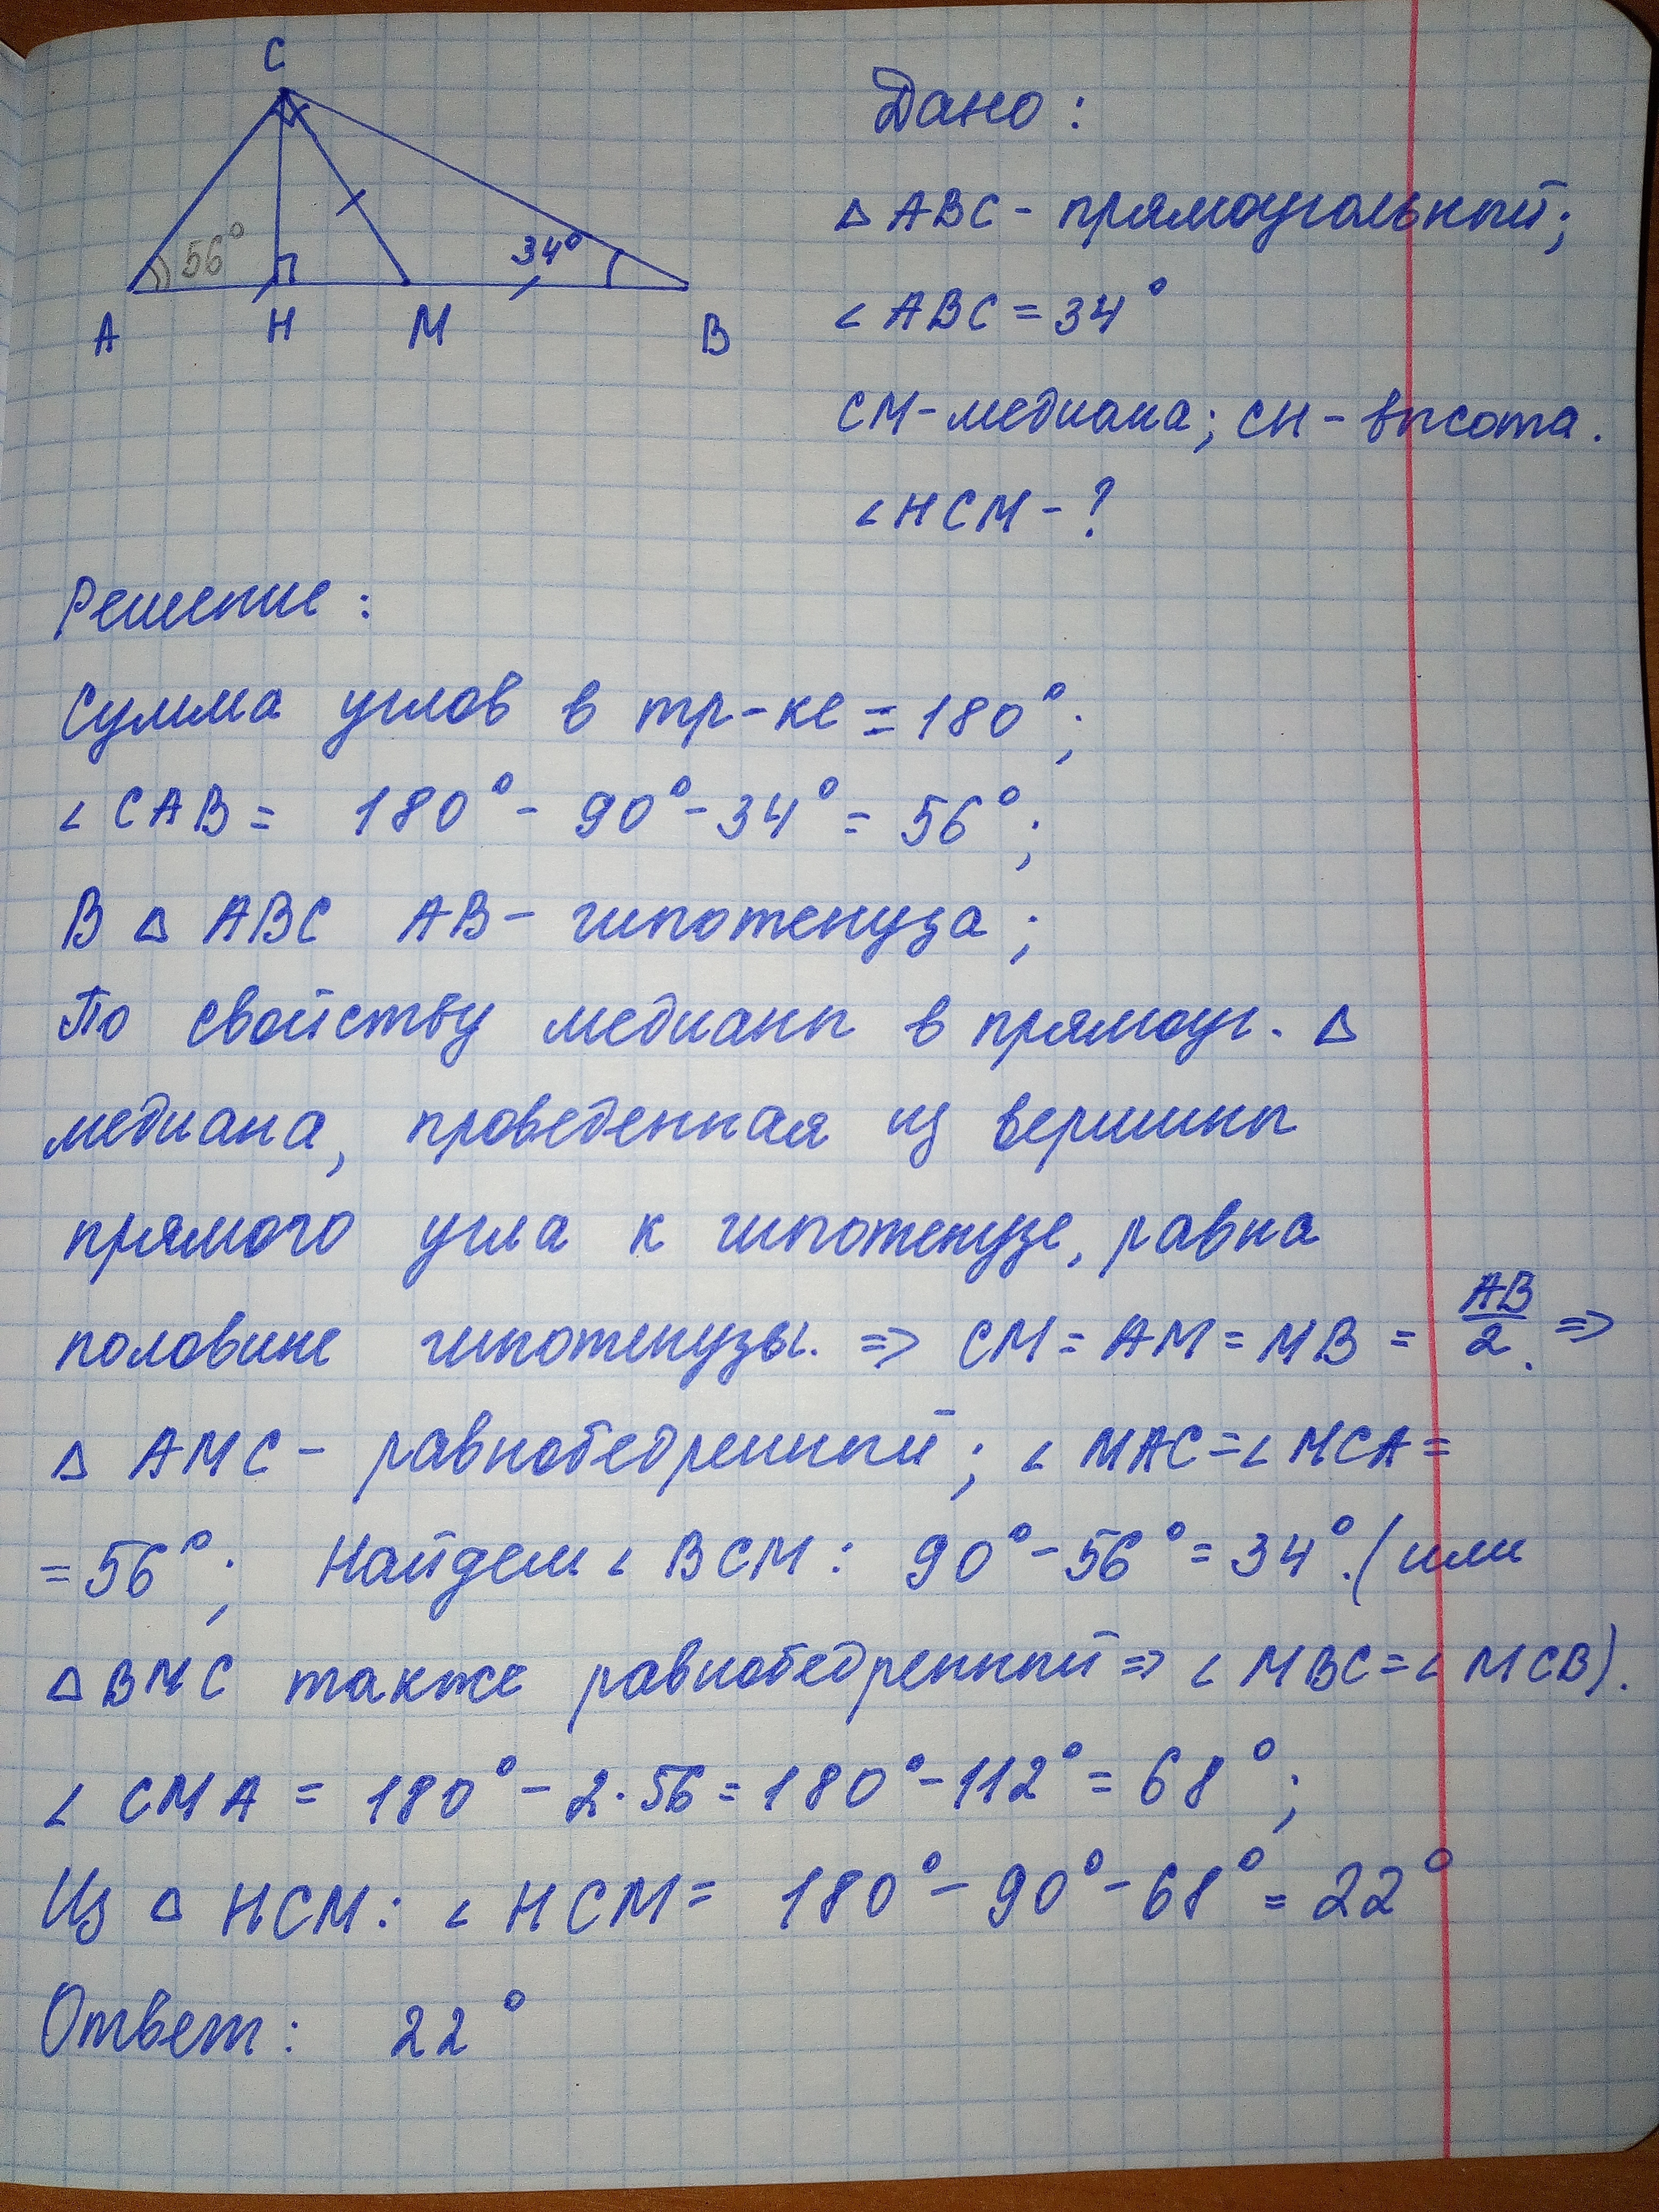 C
56°
34°
A H M B
Дано:
△ ABC - прямоугольный;
∠ ABC = 34°
CM - медиана; CH - высота.
∠ HCM - ?
Решение:
Сумма углов в тр-ке = 180°;
∠ CAB = 180° - 90° - 34° = 56°;
В △ ABC AB - гипотенуза;
По свойству медианы в прямоуг. △
медиана, проведенная из вершины
прямого угла к гипотенузе, равна
половине гипотенузы. => CM = AM = MB = AB/2. =>
△ AMC - равнобедренный; ∠ MAC = ∠ MCA =
= 56°; Найдем ∠ BCM: 90° - 56° = 34°. (или
△ BMC также равнобедренный => ∠ MBC = ∠ MCB).
∠ CMA = 180° - 2·56 = 180° - 112° = 68°;
Из △ HCM: ∠ HCM = 180° - 90° - 68° = 22°
Ответ: 22°